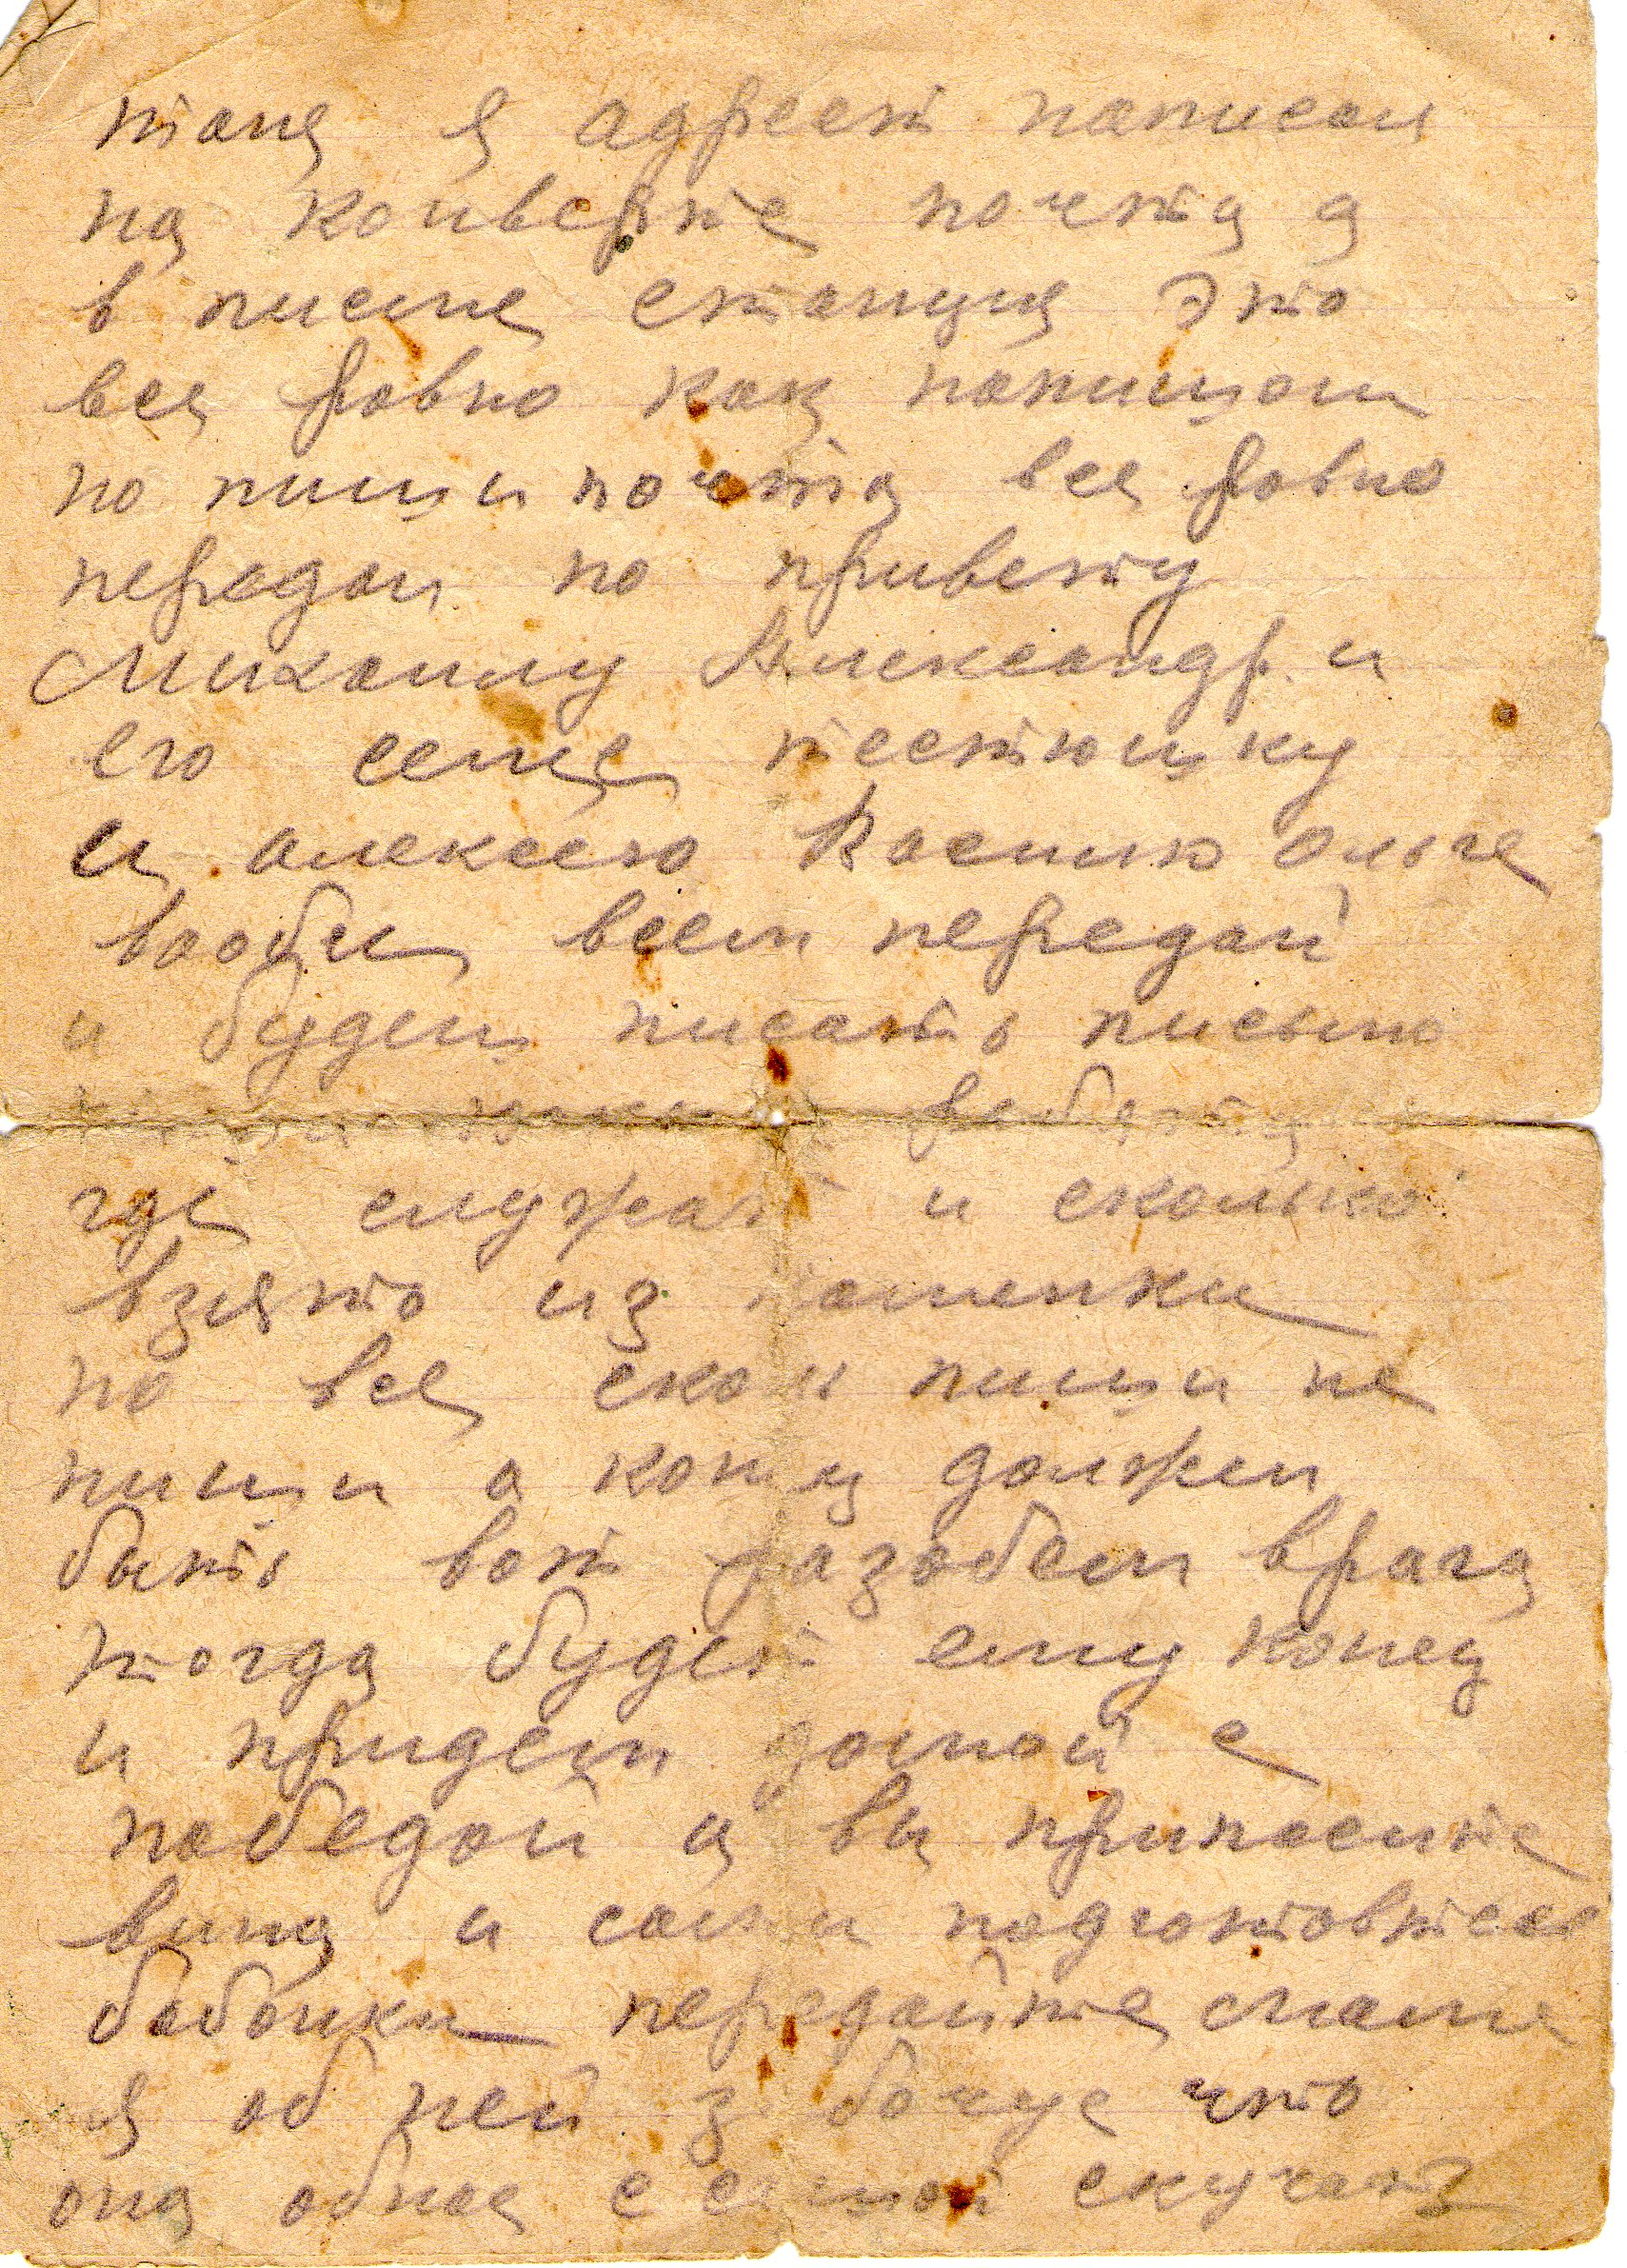 таня я адрест написал
на конверте почта а
в писме станция это
все ровно как напишеш
но пиши почта все ровно
передай по привету
Михаилу Александр. и
его семе тестюшку
и алексею Василю ольге
вообщи всем передай
и будеш писать письмо
где служат и сколько
взято из
но все скол пиши не
пиши а кониц должен
быть вот разобем врага
тогда будет ему конец
и придем домой с
победой а вы припасите
вина и сами подготовтесь
бабочки передайте маме
я об ней забочус что
она обное с семой скучает